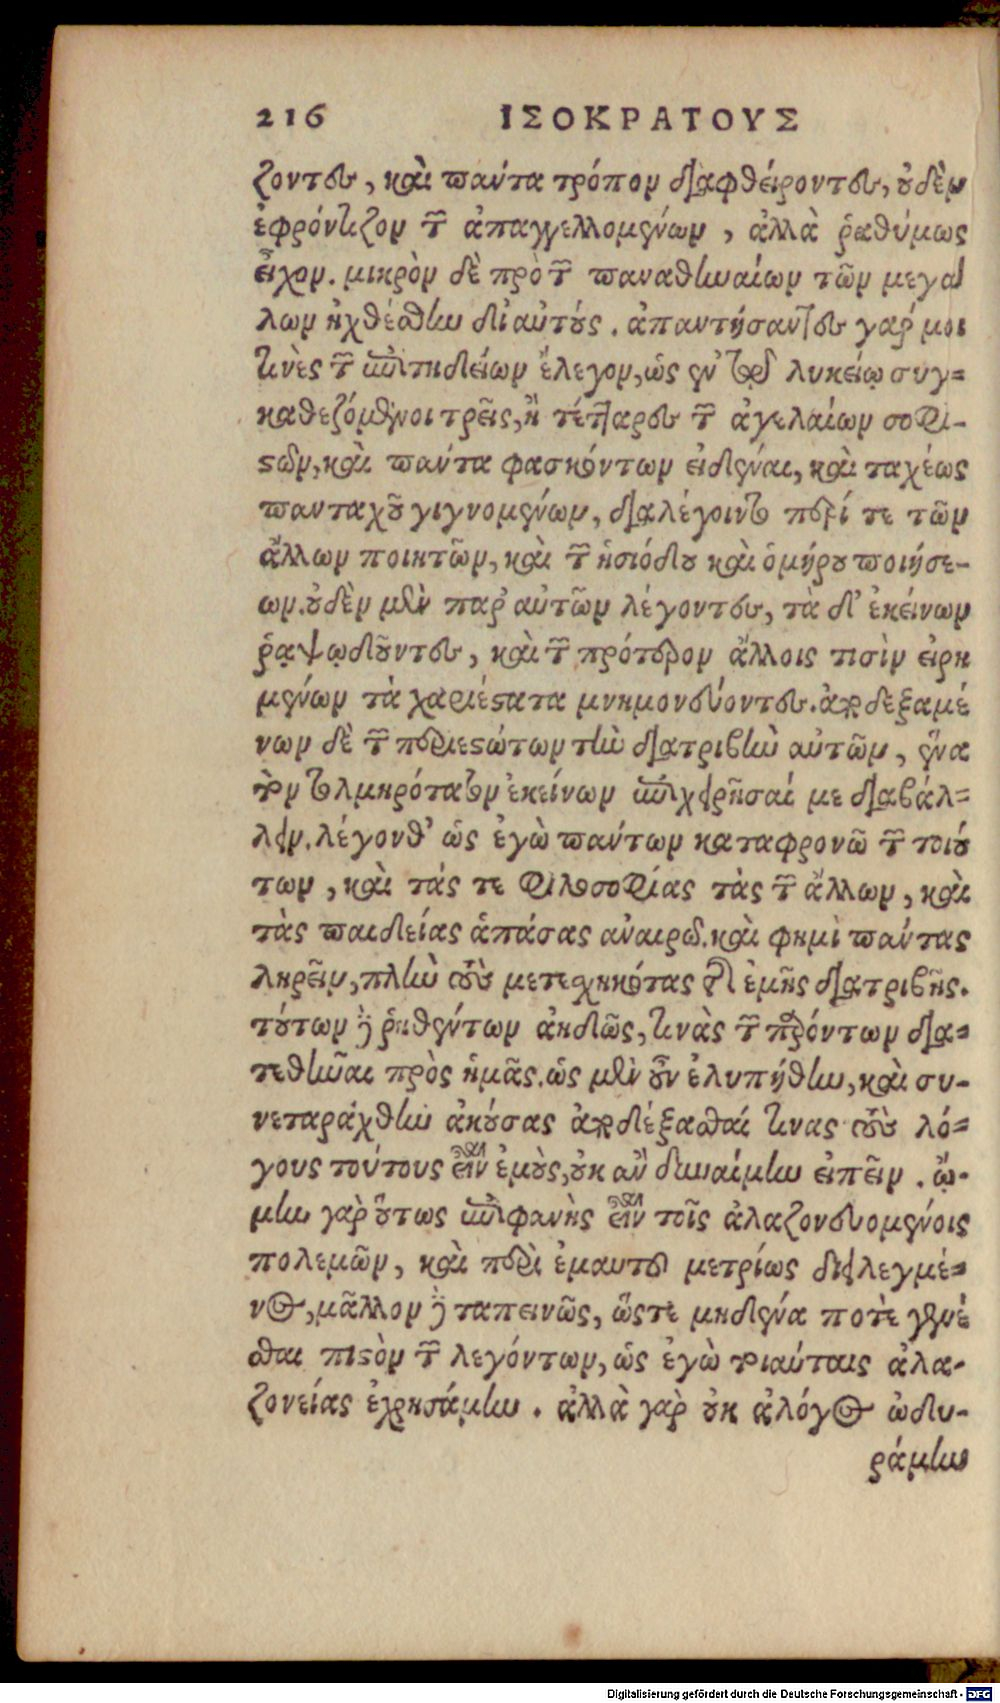 216 ΙΣΟΚΡΑΤΟΥΣ
ζοντες, καὶ πάντα τρόπον διαφθείροντες, οὐδὲν
ἐφρόντιζον τῶν ἀπαγγελλομένων, ἀλλὰ ῥαθύμως
εἶχον. μικρὸν δὲ πρὸ τῶν παναθηναίων τῶν μεγά
λων ἠχθέσθην δι' αὐτούς. ἀπαντήσαντες γάρ μοι
τινὲς τῶν ἐπιτηδείων ἔλεγον, ὡς ἐν τῷ λυκείῳ συγ=
καθεζόμενοι τρεῖς, ἢ τέτταρες τῶν ἀγελαίων σοφι-
στῶν, καὶ πάντα φασκόντων εἰδέναι, καὶ ταχέως
πανταχοῦ γιγνομένων, διαλέγοιντο περί τε τῶν
ἄλλων ποιητῶν, καὶ τῆς ἡσιόδου καὶ ὁμήρου ποιήσε-
ων. οὐδὲν μὲν παρ' αὐτῶν λέγοντες, τὰ δ' ἐκείνων
ῥαψῳδοῦντες, καὶ τῶν πρότερον ἄλλοις τισὶν εἰρη
μένων τὰ χαριέστατα μνημονεύοντες. ἀποδεξαμέ
νων δὲ τῶν περιεστώτων τὴν διατριβὴν αὐτῶν, ἕνα
τὸν τολμηρότατον ἐκείνων ἐπιχειρῆσαί με διαβάλ=
λειν. λέγονθ' ὡς ἐγὼ πάντων καταφρονῶ τῶν τοιού
των, καὶ τάς τε φιλοσοφίας τὰς τῶν ἄλλων, καὶ
τὰς παιδείας ἁπάσας ἀναιρῶ. καὶ φημὶ πάντας
ληρεῖν, πλὴν τοὺς μετεσχηκότας τῆς ἐμῆς διατριβῆς.
τούτων δὲ ῥηθέντων ἀηδῶς, τινὰς τῶν παρόντων δια=
τεθῆναι πρὸς ἡμᾶς. ὡς μὲν οὖν ἐλυπήθην, καὶ συ-
νεταράχθην ἀκούσας ἀποδέξασθαί τινας τοὺς λό=
γους τούτους εἶναι ἐμοὺς, οὐκ ἂν δυναίμην εἰπεῖν. ᾤ-
μην γὰρ οὕτως ἐπιφανὴς εἶναι τοῖς ἀλαζονευομένοις
πολεμῶν, καὶ περὶ ἐμαυτοῦ μετρίως διειλεγμέ=
νος, μᾶλλον δὲ ταπεινῶς, ὥστε μηδένα ποτὲ γενέ
σθαι πιστὸν τῶν λεγόντων, ὡς ἐγὼ τοιαύταις ἀλα-
ζονείαις ἐχρησάμην. ἀλλὰ γὰρ οὐκ ἀλόγως ὠδυ-
ράμην
Digitalisierung gefördert durch die Deutsche Forschungsgemeinschaft - DFG